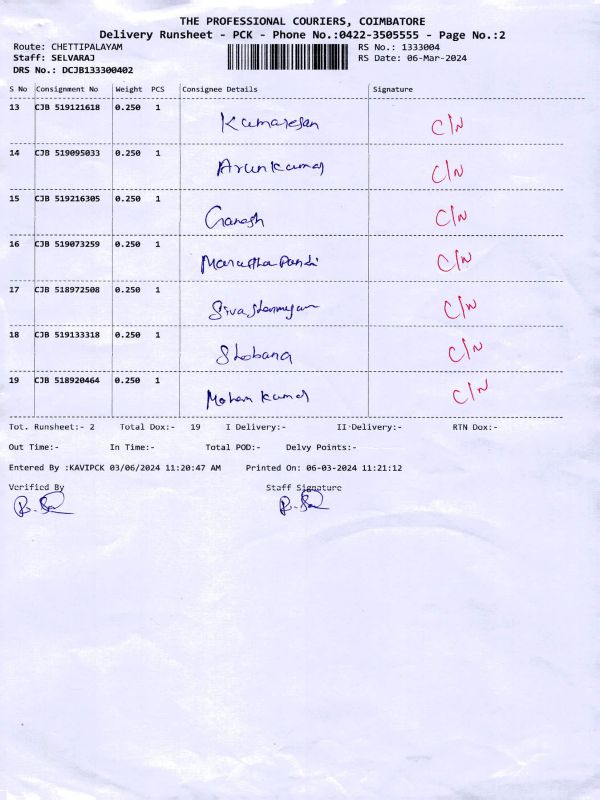 THE PROFESSIONAL COURIERS, COIMBATORE
Delivery Runsheet - PCK - Phone No.:0422-3505555 - Page No.:2
Route: CHETTIPALAYAM RS No.: 1333004
Staff: SELVARAJ RS Date: 06-Mar-2024
DRS No.: DCJB133300402
S No Consignment No Weight PCS Consignee Details Signature
13 CJB 519121618 0.250 1 Kumaresan C/N
14 CJB 519095033 0.250 1 Arunkumar C/N
15 CJB 519216305 0.250 1 Ganesh C/N
16 CJB 519073259 0.250 1 C/N
17 CJB 518972508 0.250 1 C/N
18 CJB 519133318 0.250 1 Shobana C/N
19 CJB 518920464 0.250 1 Mohan kumar C/N
Tot. Runsheet:- 2 Total Dox:- 19 I Delivery:- II Delivery:- RTN Dox:-
Out Time:- In Time:- Total POD:- Delvy Points:-
Entered By :KAVIPCK 03/06/2024 11:20:47 AM Printed On: 06-03-2024 11:21:12
Verified By Staff Signature